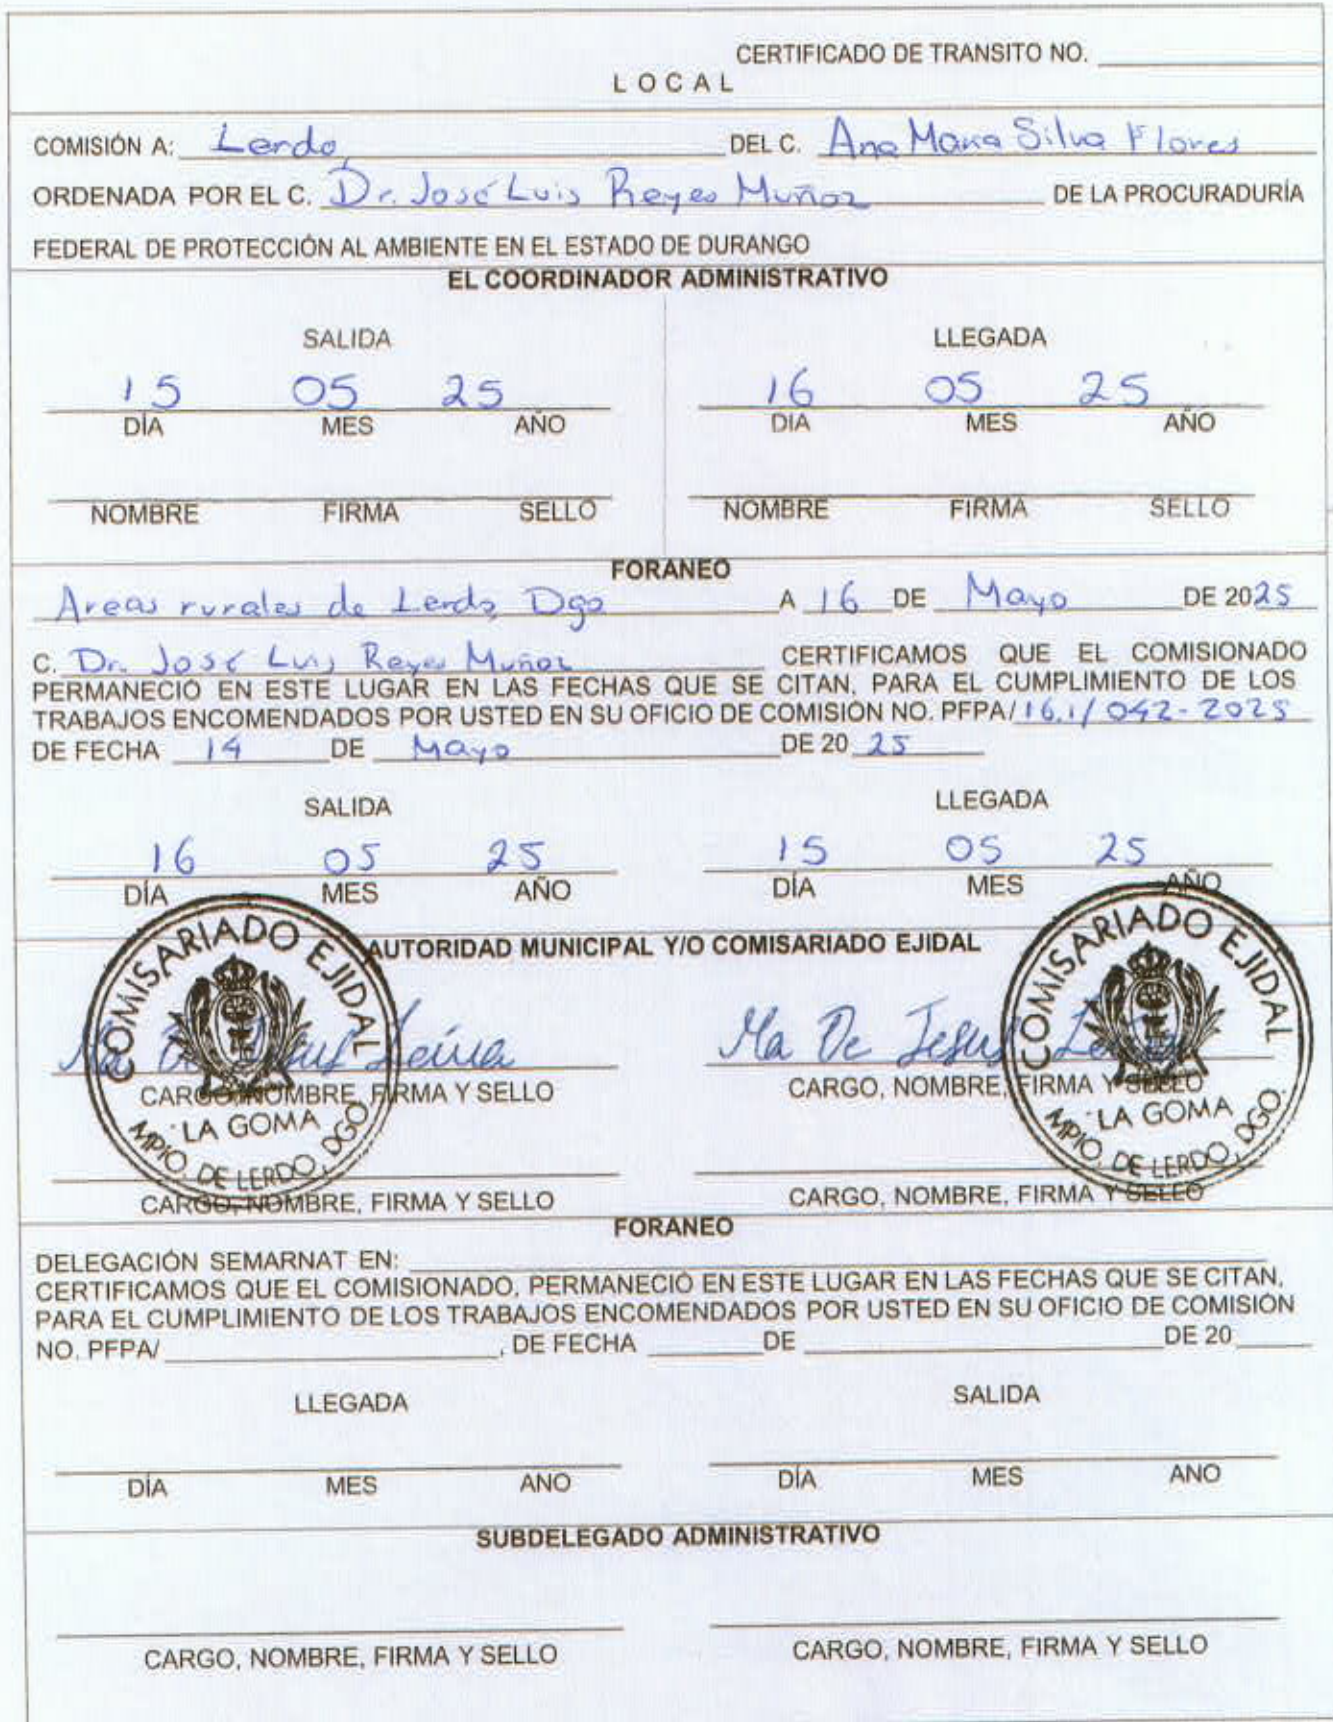 CERTIFICADO DE TRANSITO NO.
L O C A L
COMISIÓN A: Lerdo, DEL C. Ana Maria Silva Flores
ORDENADA POR EL C. Dr. José Luis Reyes Muñoz DE LA PROCURADURÍA
FEDERAL DE PROTECCIÓN AL AMBIENTE EN EL ESTADO DE DURANGO
EL COORDINADOR ADMINISTRATIVO
SALIDA LLEGADA
15 05 25 16 05 25
DÍA MES AÑO DIA MES AÑO
NOMBRE FIRMA SELLO NOMBRE FIRMA SELLO
FORANEO
Areas rurales de Lerdo, Dgo A 16 DE Mayo DE 2025
C. Dr. José Luis Reyes Muñoz CERTIFICAMOS QUE EL COMISIONADO
PERMANECIÓ EN ESTE LUGAR EN LAS FECHAS QUE SE CITAN, PARA EL CUMPLIMIENTO DE LOS
TRABAJOS ENCOMENDADOS POR USTED EN SU OFICIO DE COMISIÓN NO. PFPA/16.1/042-2025
DE FECHA 14 DE Mayo DE 20 25
SALIDA LLEGADA
16 05 25 15 05 25
DÍA MES AÑO DÍA MES AÑO
AUTORIDAD MUNICIPAL Y/O COMISARIADO EJIDAL
COMISARIADO EJIDAL COMISARIADO EJIDAL
Ma De Jesus Leiva Ma De Jesus Leiva
CARGO, NOMBRE, FIRMA Y SELLO CARGO, NOMBRE, FIRMA Y SELLO
LA GOMA LA GOMA
MPIO. DE LERDO, DGO. MPIO. DE LERDO, DGO.
CARGO, NOMBRE, FIRMA Y SELLO CARGO, NOMBRE, FIRMA Y SELLO
FORANEO
DELEGACIÓN SEMARNAT EN:
CERTIFICAMOS QUE EL COMISIONADO, PERMANECIÓ EN ESTE LUGAR EN LAS FECHAS QUE SE CITAN,
PARA EL CUMPLIMIENTO DE LOS TRABAJOS ENCOMENDADOS POR USTED EN SU OFICIO DE COMISIÓN
NO. PFPA/ , DE FECHA DE DE 20
LLEGADA SALIDA
DÍA MES ANO DÍA MES ANO
SUBDELEGADO ADMINISTRATIVO
CARGO, NOMBRE, FIRMA Y SELLO CARGO, NOMBRE, FIRMA Y SELLO